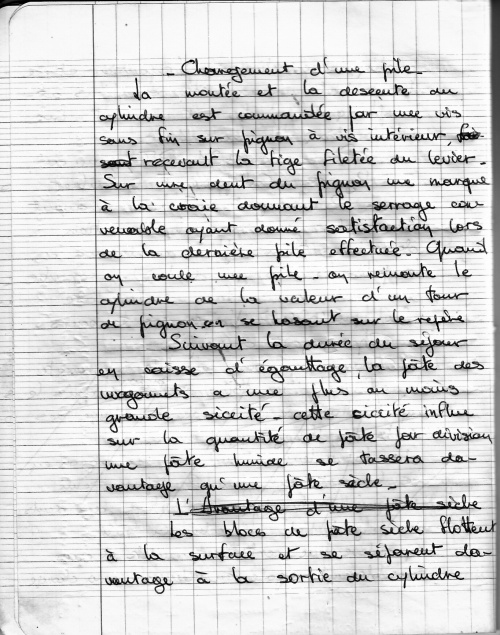 - Chargement d'une pile -
La montée et la descente du
cylindre est commandée par une vis
sans fin sur pignon à vis intérieur
recevant la tige filetée du levier.
Sur une dent du pignon une marque
à la craie donnant le serrage con
venable ayant donné satisfaction lors
de la dernière pile effectuée. Quand
on coule une pile - on remonte le
cylindre de la valeur d'un tour
de pignon en se basant sur le repère
Suivant la durée du séjour
en caisse d'égouttage la pâte des
wagonnets a une plus ou moins
grande siccité - cette siccité influe
sur la quantité de pâte par division
une pâte humide se tassera da-
vantage qu'une pâte sèche -
L'avantage d'une pâte sèche
Les blocs de pâte sèche flottent
à la surface et se séparent da-
vantage à la sortie du cylindre